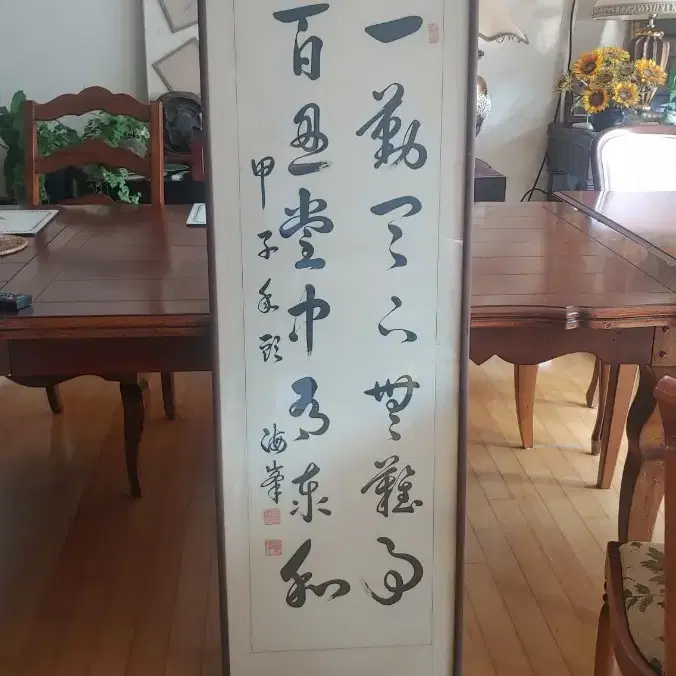 一勤天下無難事
百忍堂中有泰和
甲子年頭 海峯